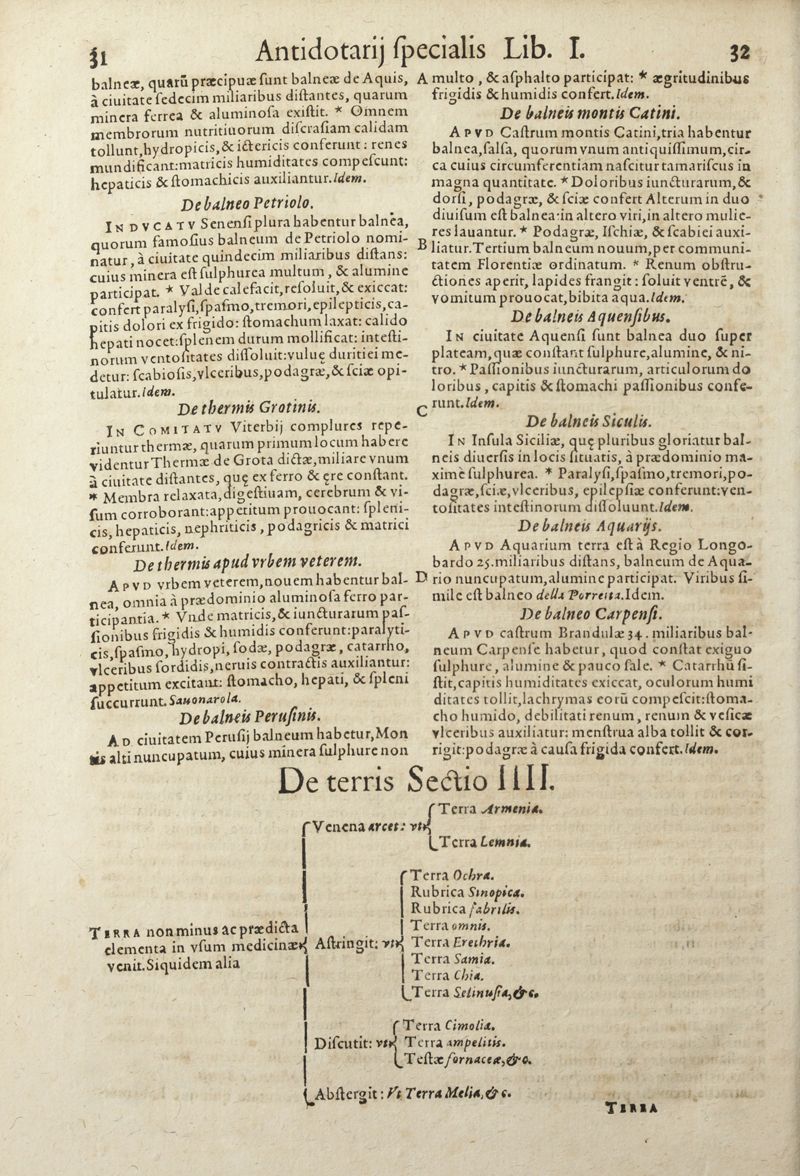 31 Antidotarij ſpecialis Lib. I. 32
balneæ, quarũ præcipuæ ſunt balneæ de Aquis,
à ciuitate ſedecim miliaribus diſtantes, quarum
minera ferrea & aluminoſa exiſtit. * Omnem
membrorum nutritiuorum diſcraſiam calidam
tollunt, hydropicis, & ictericis conferunt: renes
mundificant: matricis humiditates compeſcunt:
hepaticis & ſtomachicis auxiliantur. Idem.
De balneo Petriolo.
IN DVCATV Senenſi plura habentur balnea,
quorum famoſius balneum de Petriolo nomi-
natur, à ciuitate quindecim miliaribus diſtans:
cuius minera eſt ſulphurea multum, & alumine
participat. * Valde calefacit, reſoluit, & exiccat:
confert paralyſi, ſpaſmo, tremori, epilepticis, ca-
pitis dolori ex frigido: ſtomachum laxat: calido
hepati nocet: ſplenem durum mollificat: inteſti-
norum ventoſitates diſſoluit: vuluę duritiei me-
detur: ſcabioſis, vlceribus, podagræ, & ſciæ opi-
tulatur. Idem.
De thermis Grotinis.
IN COMITATV Viterbij complures repe-
riuntur thermæ, quarum primum locum habere
videntur Thermæ de Grota dictæ, miliare vnum
à ciuitate diſtantes, quę ex ferro & ęre conſtant.
* Membra relaxata, digeſtiuam, cerebrum & vi-
ſum corroborant: appetitum prouocant: ſpleni-
cis, hepaticis, nephriticis, podagricis & matrici
conferunt. Idem.
De thermis apud vrbem veterem.
APVD vrbem veterem, nouem habentur bal-
nea, omnia à prædominio aluminoſa ferro par-
ticipantia. * Vnde matricis, & iuncturarum paſ-
ſionibus frigidis & humidis conferunt: paralyti-
cis, ſpaſmo, hydropi, ſodæ, podagræ, catarrho,
vlceribus ſordidis, neruis contractis auxiliantur:
appetitum excitant: ſtomacho, hepati, & ſpleni
ſuccurrunt. Sauonarola.
De balneis Peruſinis.
AD ciuitatem Peruſij balneum habetur, Mon
tis alti nuncupatum, cuius minera ſulphure non
A multo, & aſphalto participat: * ægritudinibus
frigidis & humidis confert. Idem.
De balneis montis Catini.
APVD Caſtrum montis Catini, tria habentur
balnea, ſalſa, quorum vnum antiquiſſimum, cir-
ca cuius circumferentiam naſcitur tamariſcus in
magna quantitate. * Doloribus iuncturarum, &
dorſi, podagræ, & ſciæ confert Alterum in duo
diuiſum eſt balnea: in altero viri, in altero mulie-
res lauantur. * Podagræ, Iſchiæ, & ſcabiei auxi-
B liatur. Tertium balneum nouum, per communi-
tatem Florentiæ ordinatum. * Renum obſtru-
ctiones aperit, lapides frangit: ſoluit ventrẽ, &
vomitum prouocat, bibita aqua. Idem.
De balneis Aquenſibus.
IN ciuitate Aquenſi ſunt balnea duo ſuper
plateam, quæ conſtant ſulphure, alumine, & ni-
tro. * Paſſionibus iuncturarum, articulorum do
loribus, capitis & ſtomachi paſſionibus confe-
C runt. Idem.
De balneis Siculis.
IN Inſula Siciliæ, quę pluribus gloriatur bal-
neis diuerſis in locis ſituatis, à prædominio ma-
ximè ſulphurea. * Paralyſi, ſpaſmo, tremori, po-
dagræ, ſciæ, vlceribus, epilepſiæ conferunt: ven-
toſitates inteſtinorum diſſoluunt. Idem.
De balneis Aquarijs.
APVD Aquarium terra eſt à Regio Longo-
bardo 25. miliaribus diſtans, balneum de Aqua-
D rio nuncupatum, alumine participat. Viribus ſi-
mile eſt balneo della Porretta. Idem.
De balneo Carpenſi.
APVD caſtrum Brandulæ 34. miliaribus bal-
neum Carpenſe habetur, quod conſtat exiguo
ſulphure, alumine & pauco ſale. * Catarrhũ ſi-
ſtit, capitis humiditates exiccat, oculorum humi
ditates tollit, lachrymas eorũ compeſcit: ſtoma-
cho humido, debilitati renum, renum & veſicæ
vlceribus auxiliatur: menſtrua alba tollit & cor-
rigit: podagræ à cauſa frigida confert. Idem.
De terris Sectio IIII.
TERRA non minus ac prædicta
elementa in vſum medicinæ
venit. Siquidem alia
Venena arcet: vt
Terra Armenia.
Terra Lemnia.
Aſtringit: vt
Terra Ochra.
Rubrica Sinopica.
Rubrica fabrilis.
Terra omnis.
Terra Erethria.
Terra Samia.
Terra Chia.
Terra Selinuſia, &c.
Diſcutit: vt
Terra Cimolia.
Terra ampelitis.
Teſtæ fornaceæ, &c.
Abſtergit: Vt Terra Melia, &c.
TERRA